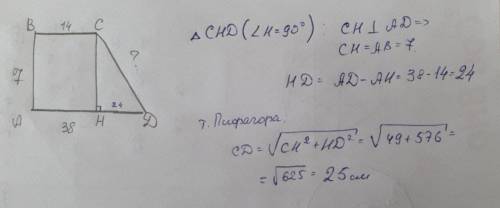 B 14 C
7
?
24
A 38 H D
△CHD (∠H=90°): CH ⊥ AD =>
CH = AB = 7.
HD = AD - AH = 38 - 14 = 24
т. Пифагора.
CD = √CH² + HD² = √49 + 576 =
= √625 = 25 см